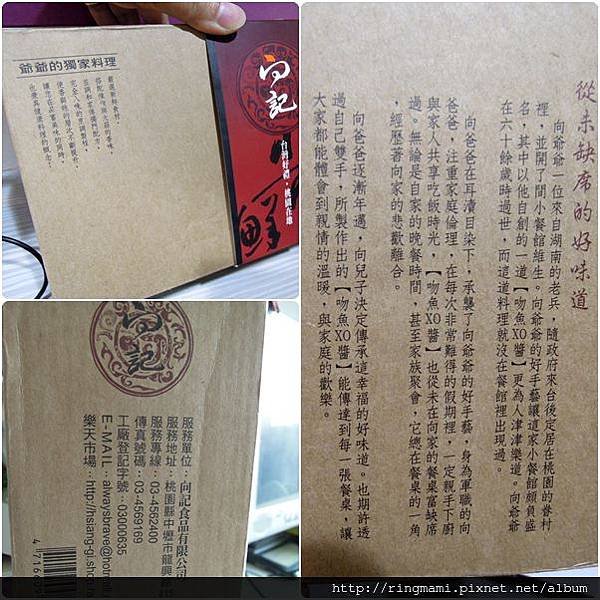 爺爺的獨家料理
嚴選新鮮食材,
完全入味的烹調過程,
使香與味的層次不斷提升,
讓您在品嘗美味的同時,
也兼具健康料理的概念!
向記
台灣好禮,桃園在地
鮮
從未缺席的好味道
向爺爺一位來自湖南的老兵,隨政府來台後定居在桃園的眷村
裡,並開了間小餐館維生。向爺爺的好手藝讓這家小餐館頗負盛
名,其中以他自創的一道【吻魚XO醬】更為人津津樂道。向爺爺
在六十餘歲時過世,而這道料理就沒在餐館裡出現過。
向爸爸在耳濡目染下,承襲了向爺爺的好手藝,身為軍職的向
爸爸,注重家庭倫理,在每次非常難得的假期裡,一定親手下廚
與家人共享吃飯時光,【吻魚XO醬】也從未在向家的餐桌當缺席
過。無論是自家的晚餐時間,甚至家族聚會,它總在餐桌的一角
,經歷著向家的悲歡離合。
向爸爸逐漸年邁,向兒子決定傳承這幸福的好味道。也期許透
過自己雙手,所製作出的【吻魚XO醬】能傳達到每一張餐桌,讓
大家都能體會到親情的溫暖,與家庭的歡樂。
向記
服務單位:向記食品有限公司
服務地址:桃園縣中壢市龍興
服務專線:03-4562400
傳真號碼:03-4569169
工廠登記計號:03000635
E-MAIL:alwaysbrave@hotmail
樂天市場:http://hsiang-gi.shop.ra
4 716
http://ringmami.pixnet.net/album